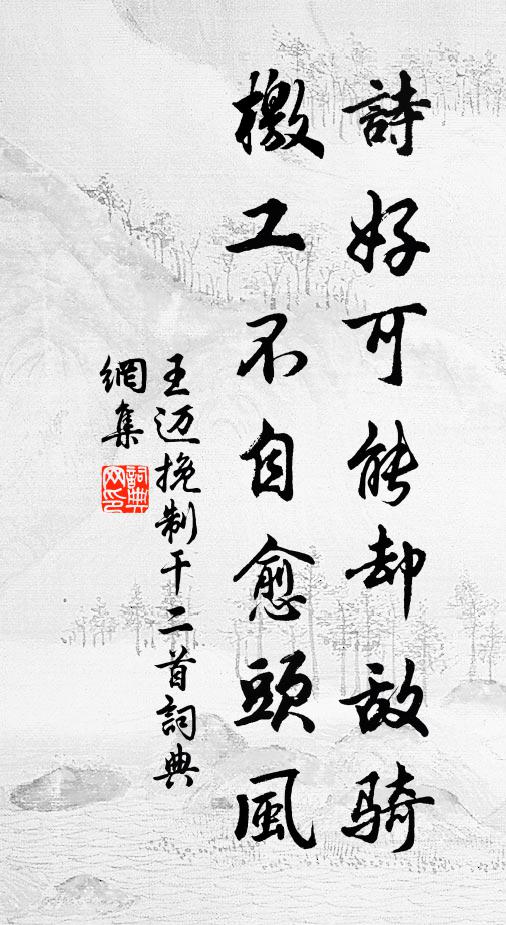 詩好可能却敌骑
檄工不自愈頭風
王迈挽制干二首詞典
網集
詞典
网印